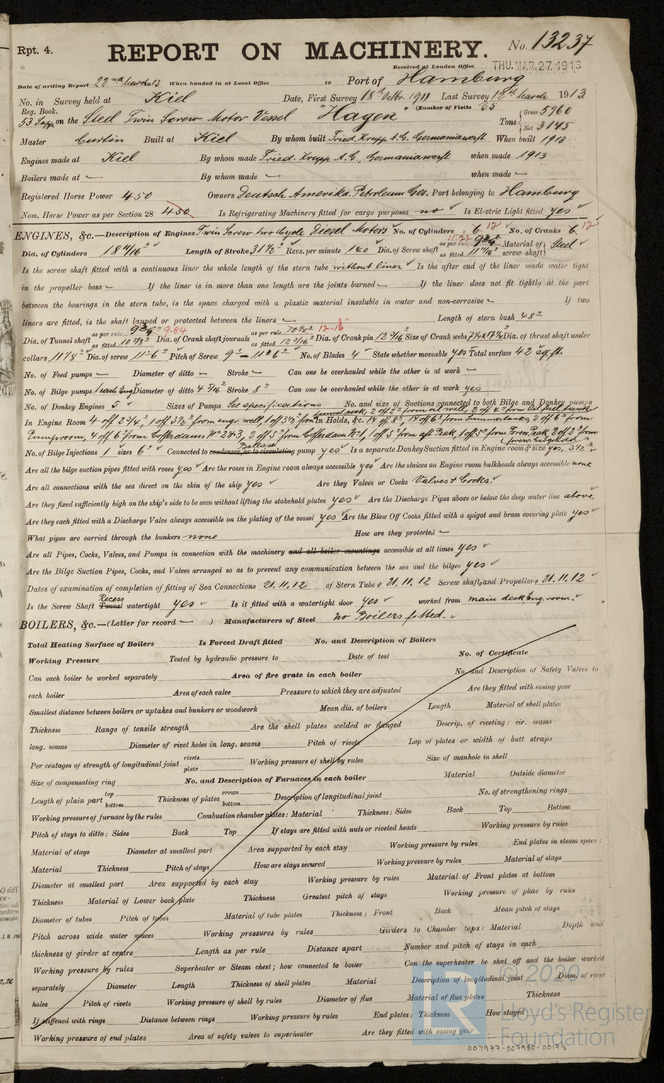 Rpt. 4.
REPORT ON MACHINERY.
No. 13237
Received at London Office THU. MAR. 27. 1913
Date of writing Report 22nd March 13 When handed in at Local Office 19 Port of Hamburg
No. in Survey held at Kiel Date, First Survey Last Survey 18th March 1913
Reg. Book. (Number of Visits 65
53 Supp on the Steel Twin Screw Motor Vessel "Hagen" Tons Gross 5960 Net 3145
Master Built at Kiel By whom built Fried. Krupp A.G. Germaniawerft When built 1913
Engines made at Kiel By whom made Fried. Krupp A.G. Germaniawerft when made 1913
Boilers made at — By whom made — when made —
Registered Horse Power 450 Owners Deutsch Amerika. Petroleum Ges. Port belonging to Hamburg
Nom. Horse Power as per Section 28 450 Is Refrigerating Machinery fitted for cargo purposes no Is Electric Light fitted yes
ENGINES, &c.—Description of Engines Twin Screw two Cycle Diesel Motors No. of Cylinders 6 12 No. of Cranks 6 12
Dia. of Cylinders 18 11/16" Length of Stroke 31 1/2" Revs. per minute 140 Dia. of Screw shaft as per rule as fitted Material of screw shaft Steel
Is the screw shaft fitted with a continuous liner the whole length of the stern tube without liner Is the after end of the liner made water tight
in the propeller boss — If the liner is in more than one length are the joints burned — If the liner does not fit tightly at the part
between the bearings in the stern tube, is the space charged with a plastic material insoluble in water and non-corrosive — If two
liners are fitted, is the shaft lapped or protected between the liners — Length of stern bush 48"
Dia. of Tunnel shaft as per rule 9.84 as fitted Dia. of Crank shaft journals as per rule as fitted Dia. of Crank pin Size of Crank webs Dia. of thrust shaft under
collars 11 7/8" Dia. of screw 11'-6" Pitch of Screw No. of Blades 4 State whether moveable yes Total surface 42 sq. ft.
No. of Feed pumps — Diameter of ditto — Stroke — Can one be overhauled while the other is at work —
No. of Bilge pumps 1 each Eng Diameter of ditto Stroke 8" Can one be overhauled while the other is at work yes
No. of Donkey Engines 5 Sizes of Pumps See specifications No. and size of Suctions connected to both Bilge and Donkey pumps
In Engine Room In Holds, &c.
No. of Bilge Injections 1 sizes 6" Connected to condenser, or to circulating Ballast pump yes Is a separate Donkey Suction fitted in Engine room & size yes, 3 1/2"
Are all the bilge suction pipes fitted with roses yes Are the roses in Engine room always accessible yes Are the sluices on Engine room bulkheads always accessible none
Are all connections with the sea direct on the skin of the ship yes Are they Valves or Cocks Valves & Cocks.
Are they fixed sufficiently high on the ship's side to be seen without lifting the stokehold plates yes Are the Discharge Pipes above or below the deep water line above
Are they each fitted with a Discharge Valve always accessible on the plating of the vessel yes Are the Blow Off Cocks fitted with a spigot and brass covering plate yes
What pipes are carried through the bunkers none How are they protected —
Are all Pipes, Cocks, Valves, and Pumps in connection with the machinery and all boiler mountings accessible at all times yes
Are the Bilge Suction Pipes, Cocks, and Valves arranged so as to prevent any communication between the sea and the bilges yes
Dates of examination of completion of fitting of Sea Connections 21.11.12 of Stern Tube 21.11.12 Screw shaft and Propellers 21.11.12
Is the Screw Shaft Tunnel Recess watertight yes Is it fitted with a watertight door yes worked from main deck Eng. room.
BOILERS, &c.—(Letter for record — ) Manufacturers of Steel No Boilers fitted.
Total Heating Surface of Boilers Is Forced Draft fitted No. and Description of Boilers
Working Pressure Tested by hydraulic pressure to Date of test No. of Certificate
Can each boiler be worked separately Area of fire grate in each boiler No. and Description of Safety Valves to
each boiler Area of each valve Pressure to which they are adjusted Are they fitted with easing gear
Smallest distance between boilers or uptakes and bunkers or woodwork Mean dia. of boilers Length Material of shell plates
Thickness Range of tensile strength Are the shell plates welded or flanged Descrip. of riveting: cir. seams
long. seams Diameter of rivet holes in long. seams Pitch of rivets Lap of plates or width of butt straps
Per centages of strength of longitudinal joint rivets plate Working pressure of shell by rules Size of manhole in shell
Size of compensating ring No. and Description of Furnaces in each boiler Material Outside diameter
Length of plain part top bottom Thickness of plates crown bottom Description of longitudinal joint No. of strengthening rings
Working pressure of furnace by the rules Combustion chamber plates: Material Thickness: Sides Back Top Bottom
Pitch of stays to ditto: Sides Back Top If stays are fitted with nuts or riveted heads Working pressure by rules
Material of stays Diameter at smallest part Area supported by each stay Working pressure by rules End plates in steam space:
Material Thickness Pitch of stays How are stays secured Working pressure by rules Material of stays
Diameter at smallest part Area supported by each stay Working pressure by rules Material of Front plates at bottom
Thickness Material of Lower back plate Thickness Greatest pitch of stays Working pressure of plate by rules
Diameter of tubes Pitch of tubes Material of tube plates Thickness: Front Back Mean pitch of stays
Pitch across wide water spaces Working pressures by rules Girders to Chamber tops: Material Depth and
thickness of girder at centre Length as per rule Distance apart Number and pitch of stays in each
Working pressure by rules Superheater or Steam chest; how connected to boiler Can the superheater be shut off and the boiler worked
separately Diameter Length Thickness of shell plates Material Description of longitudinal joint Diam. of rivet
holes Pitch of rivets Working pressure of shell by rules Diameter of flue Material of flue plates Thickness
If stiffened with rings Distance between rings Working pressure by rules End plates: Thickness How stayed
Working pressure of end plates Area of safety valves to superheater Are they fitted with easing gear
LR © 2020 Lloyd's Register Foundation
007977-007980-0017 1/2